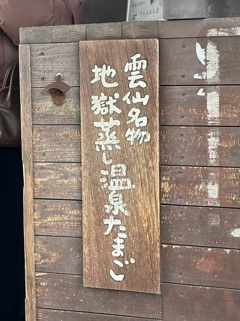 雲仙名物
地獄蒸し温泉たまご